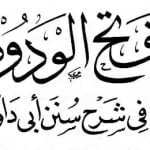 فتح الودود
في شرح سنن أبي داو